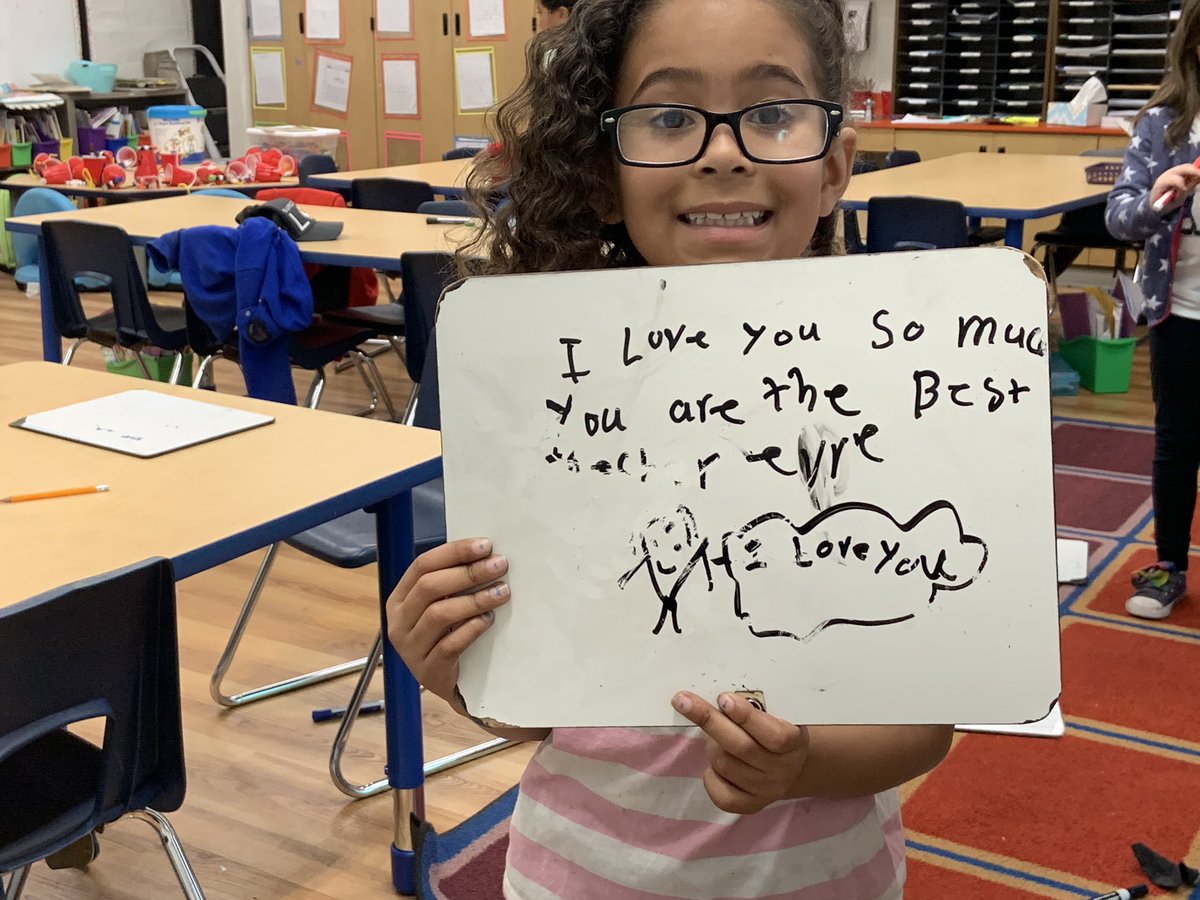 I Love you So muc
You are the Best
techer evre
I Love you